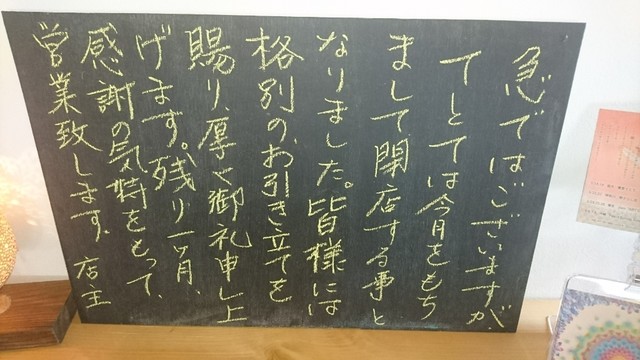 急ではございますが、
てとては今月をもち
まして閉店する事と
なりました。皆様には
格別の、お引き立てを
賜り、厚く御礼申し上
げます。残り一ヶ月、
感謝の気持をもって、
営業致します。店主